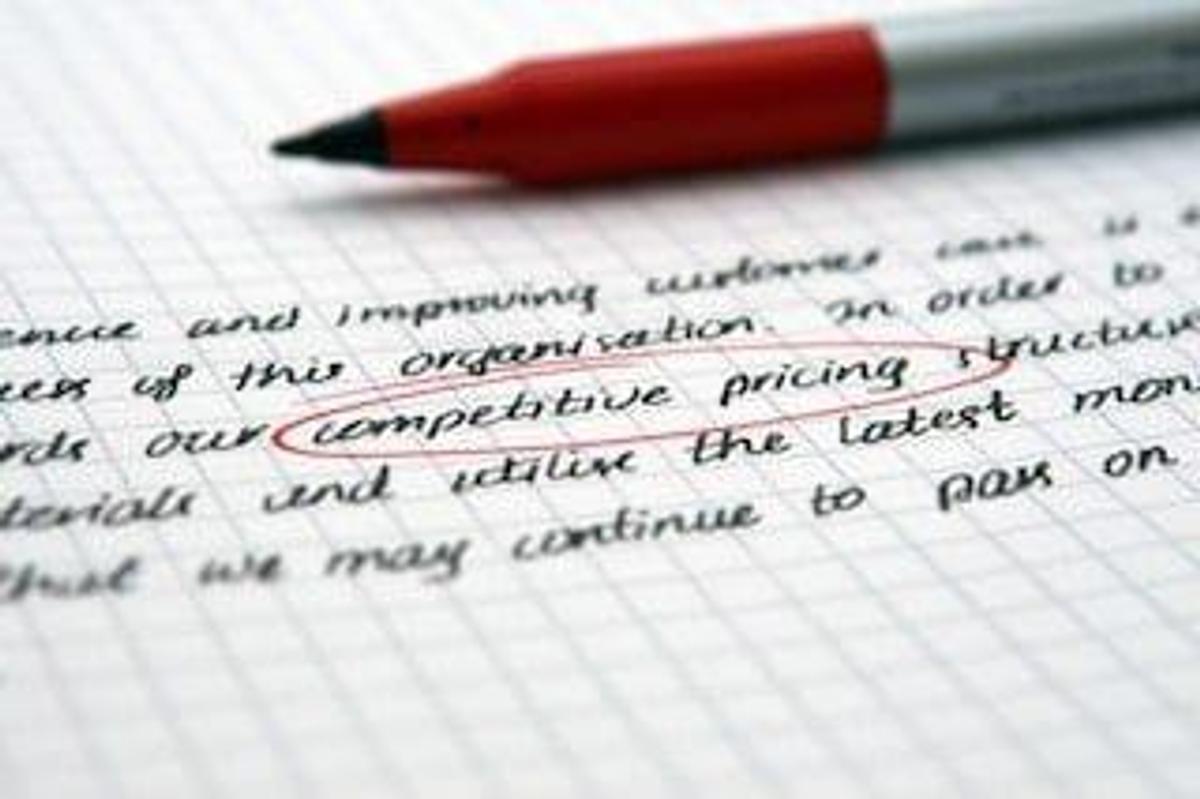 and improving customer care is
of this organisation. In order to
our competitive pricing structure
and utilise the latest
that we may continue to pass on